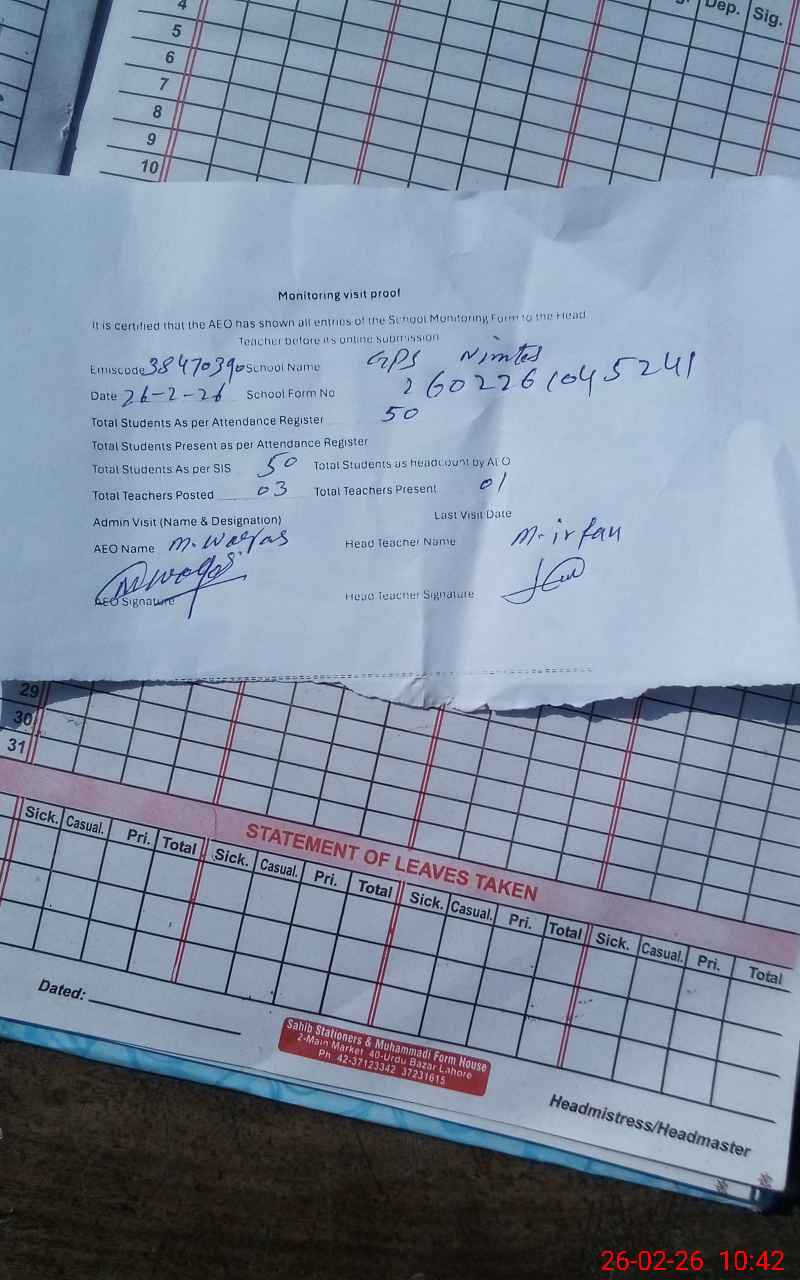 4
5
6
7
8
9
10
Dep. Sig.
Monitoring visit proof
It is certified that the AEO has shown all entries of the School Monitoring Form to the Head
Teacher before its online submission
Emiscode 38470390 School Name GPS
Date 26-2-26 School Form No 2602261045241
Total Students As per Attendance Register 50
Total Students Present as per Attendance Register
Total Students As per SIS 50 Total Students as headcount by AEO
Total Teachers Posted 03 Total Teachers Present 01
Admin Visit (Name & Designation) Last Visit Date
AEO Name M. Waqas Head Teacher Name M. irfan
M Waqas
AEO Signature Head Teacher Signature
29
30
31
STATEMENT OF LEAVES TAKEN
Sick. Casual. Pri. Total Sick. Casual. Pri. Total Sick. Casual. Pri. Total Sick. Casual. Pri. Total
Dated:
Sahib Stationers & Muhammadi Form House
2-Main Market 40-Urdu Bazar Lahore
Ph 42-37123342 37231615
Headmistress/Headmaster
26-02-26 10:42